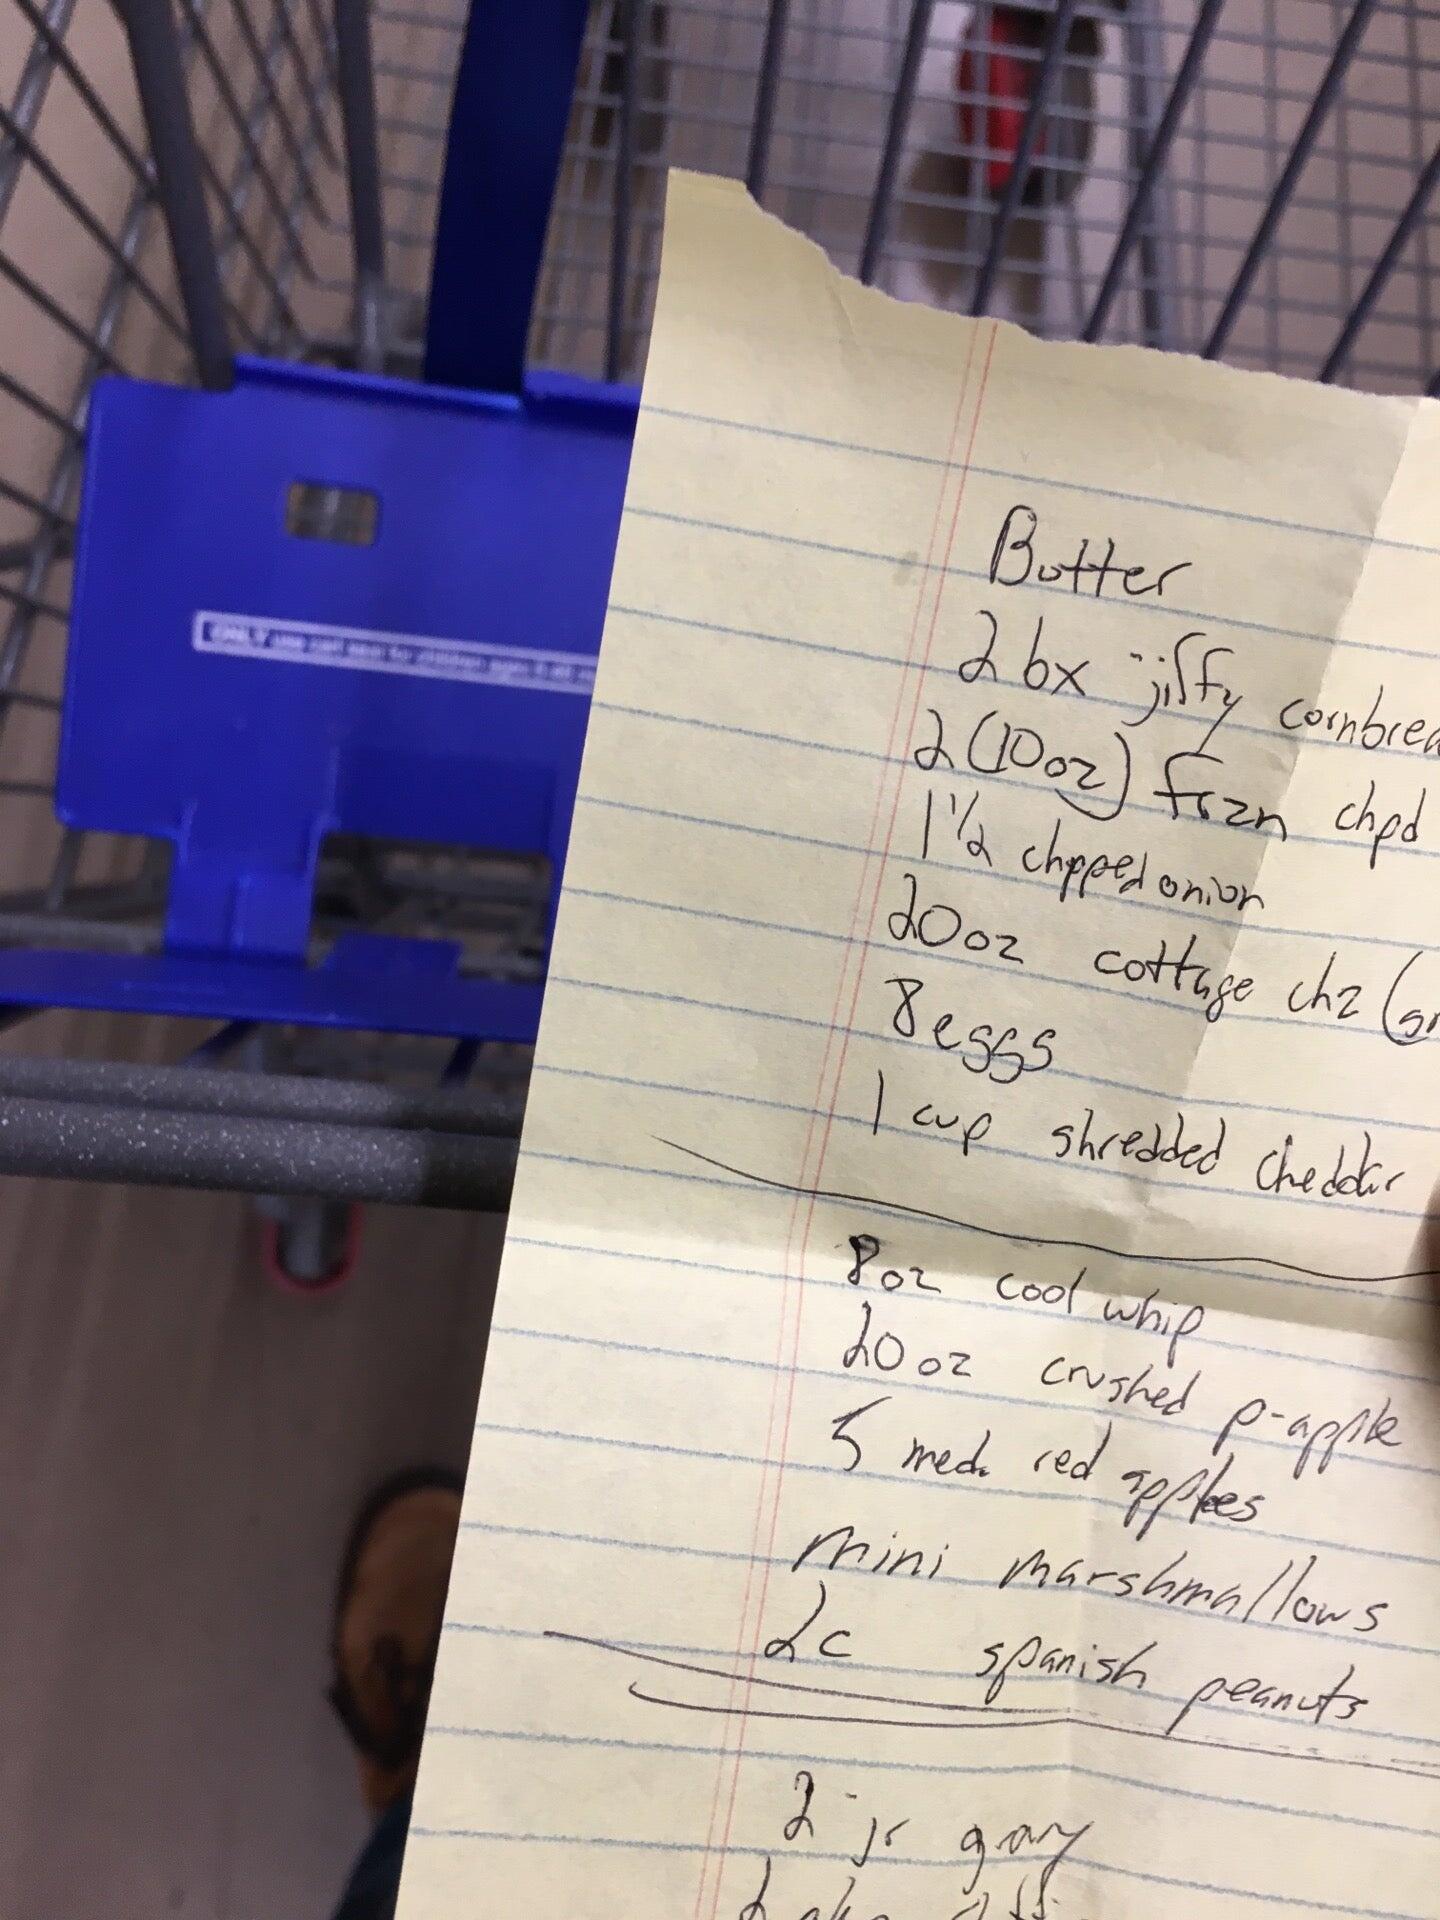 ONLY use cart seat for children ages
Butter
2 bx jiffy cornbrea
2 (10oz) frzn chpd
1 1/2 chpped onion
20oz cottage chz (
8 eggs
1 cup shredded cheddar
8oz cool whip
20 oz crushed p-apple
5 med. red apples
mini marshmallows
2c spanish peanuts
2 jr gravy
2